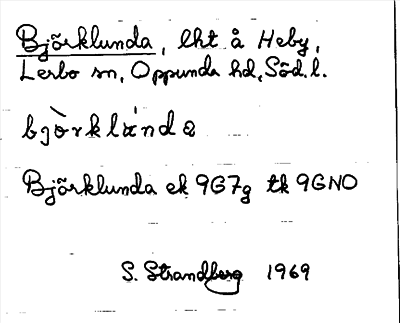 Björklunda, lht å Heby,
Lerbo sn, Oppunda hd, Söd. l.
bjò̀rklánda
Björklunda ek 9G7g tk 9GNO
S. Strandberg 1969